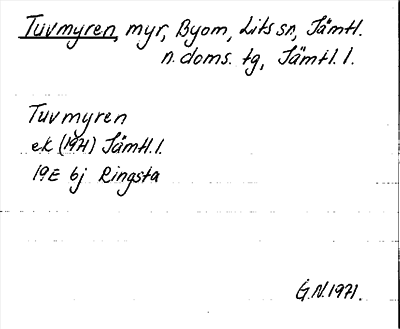 Tuvmyren, myr, Byom, Lits sn, Jämtl.
n. doms. tg, Jämtl. l.
Tuvmyren
ek (1971) Jämtl. l.
19E 6j Ringsta
G.N. 1971.